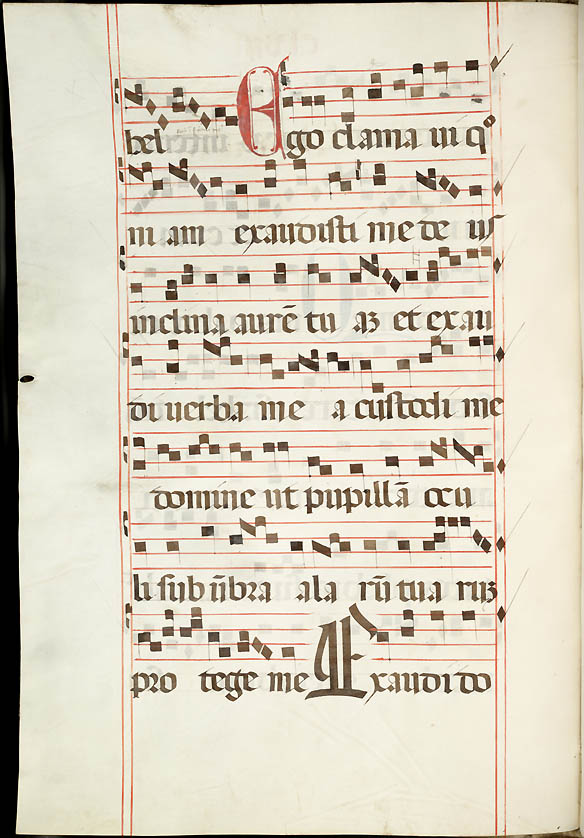 bel Ego clama ui qo
ni am exaudisti me de us
inclina aurē tu aȝ et exau
di uerba me a custodi me
domine ut pupillā ocu
li sub ūbra ala rū tua ruȝ
pro tege me Exaudi do